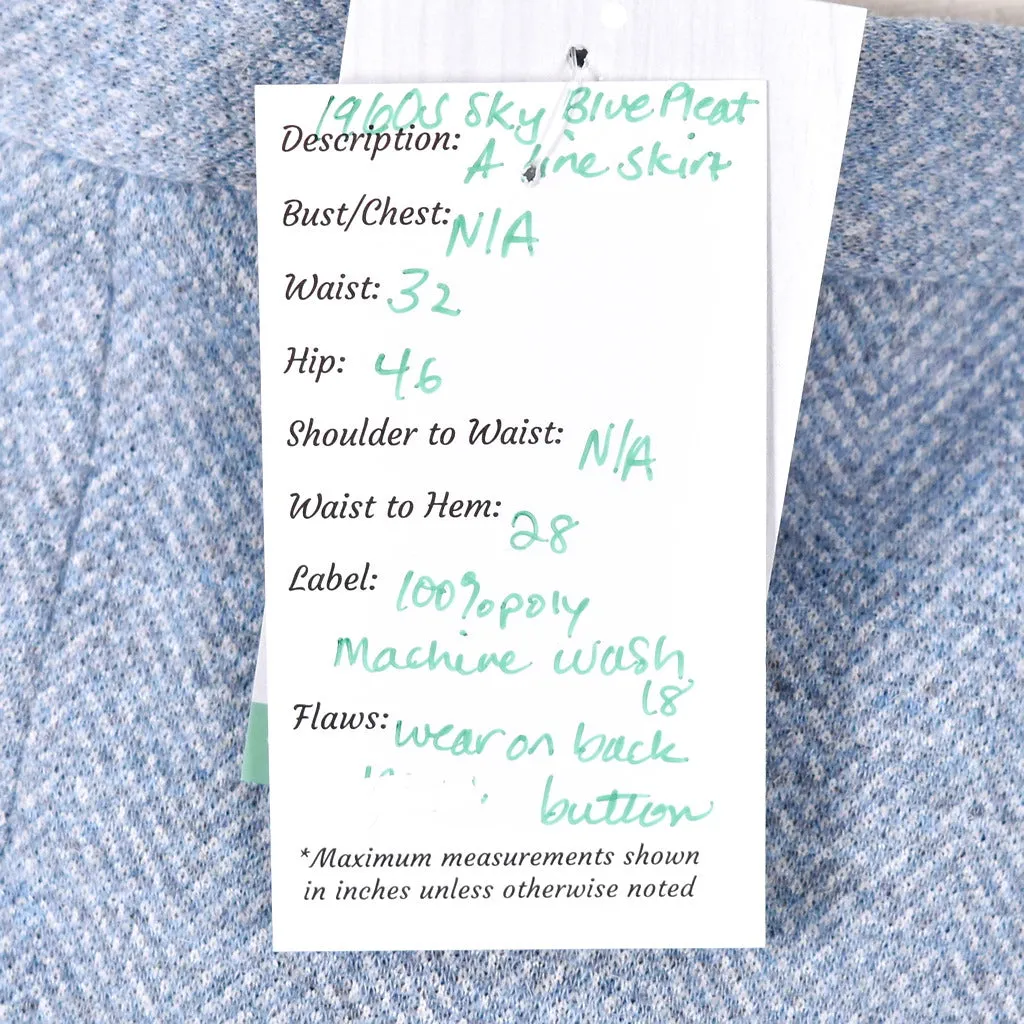 1960s Sky Blue Pleat
Description: A line skirt
Bust/Chest: N/A
Waist: 32
Hip: 46
Shoulder to Waist: N/A
Waist to Hem: 28
Label: 100% poly
Machine wash
18
Flaws: wear on back
button
*Maximum measurements shown
in inches unless otherwise noted